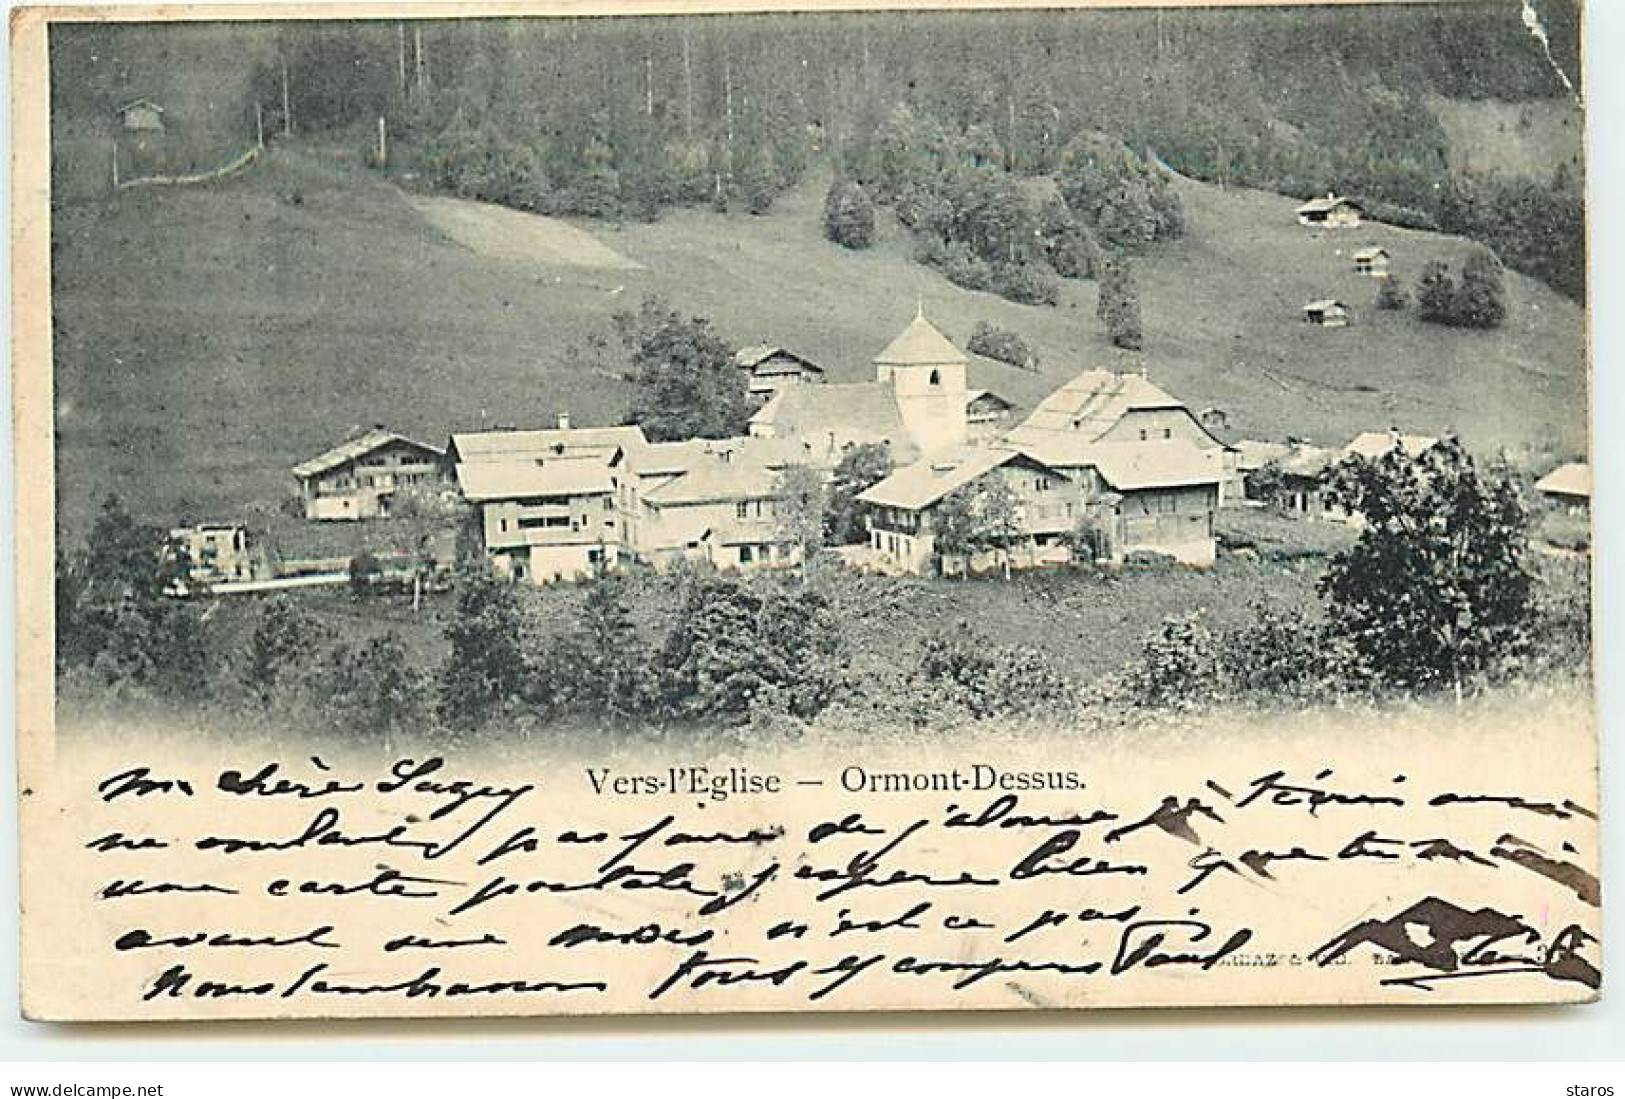 Vers-l'Eglise — Ormont-Dessus.
Ma chère Suzy
ne voulant pas faire de jalouse je t'écris aussi
une carte postale j'espère bien que tu
avant une mois n'est ce pas
Nous t'embrassons tous y compris Paul
www.delcampe.net
staros